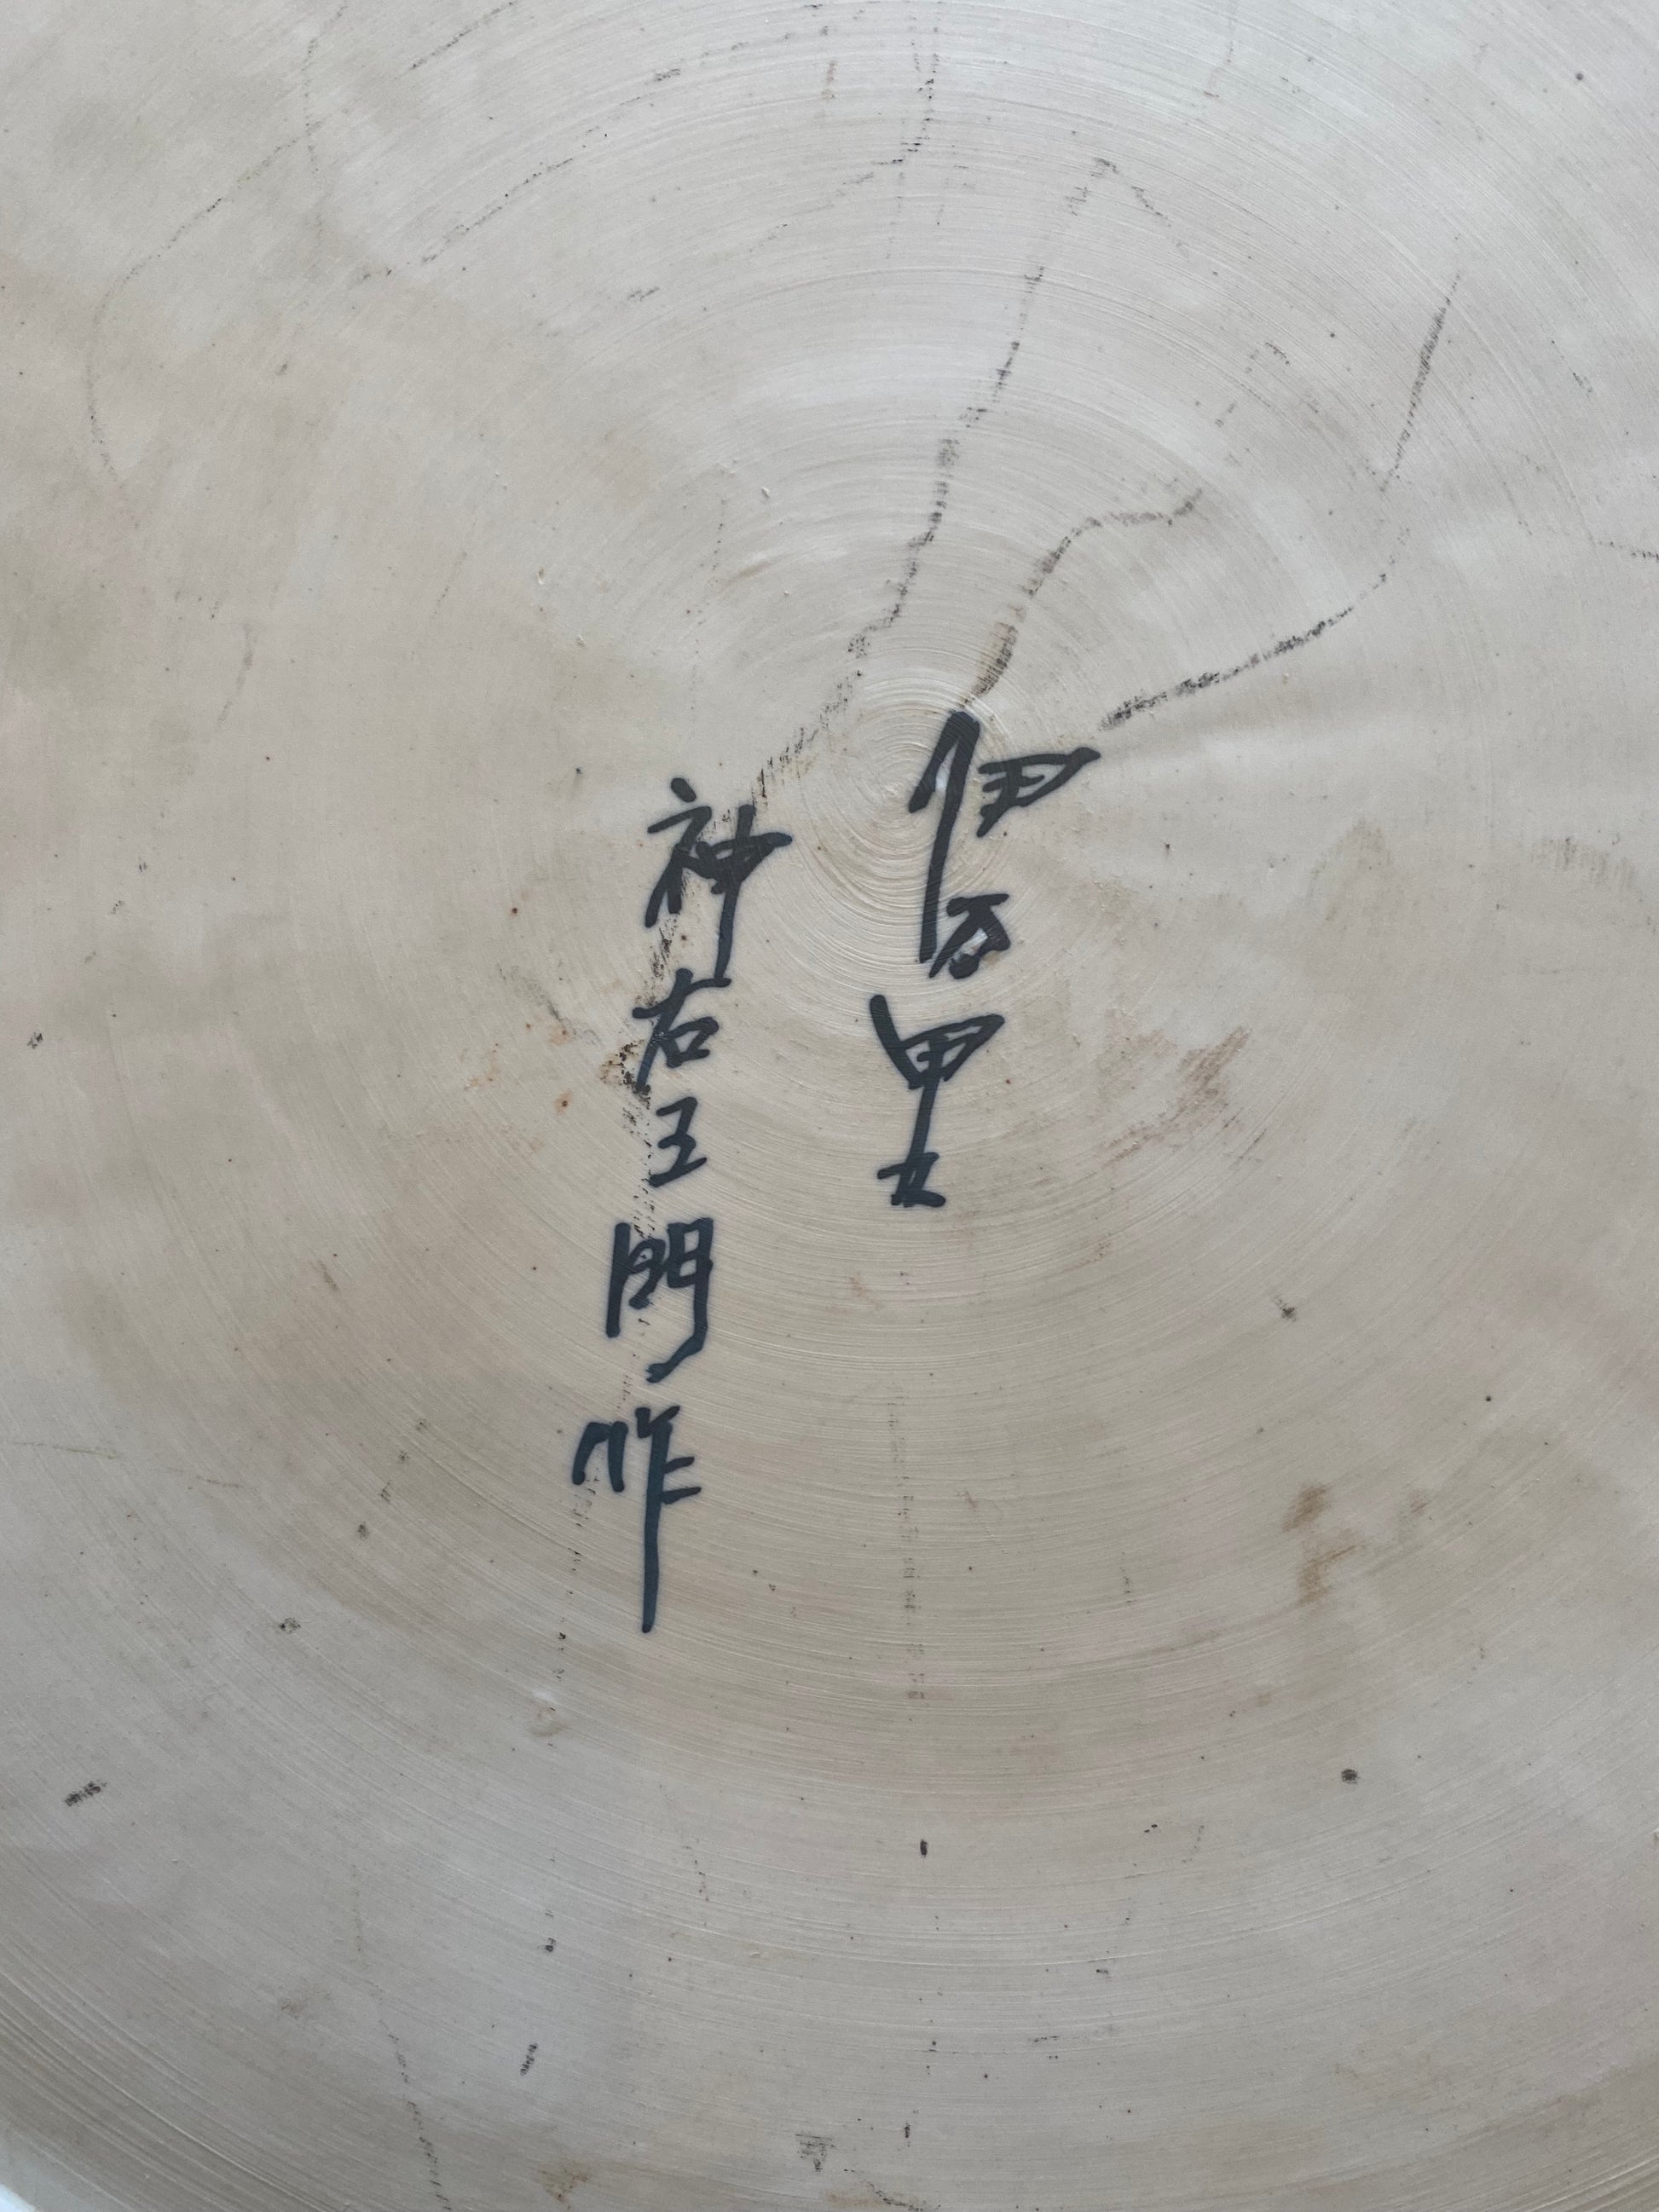 伊万里
神右ヱ門作